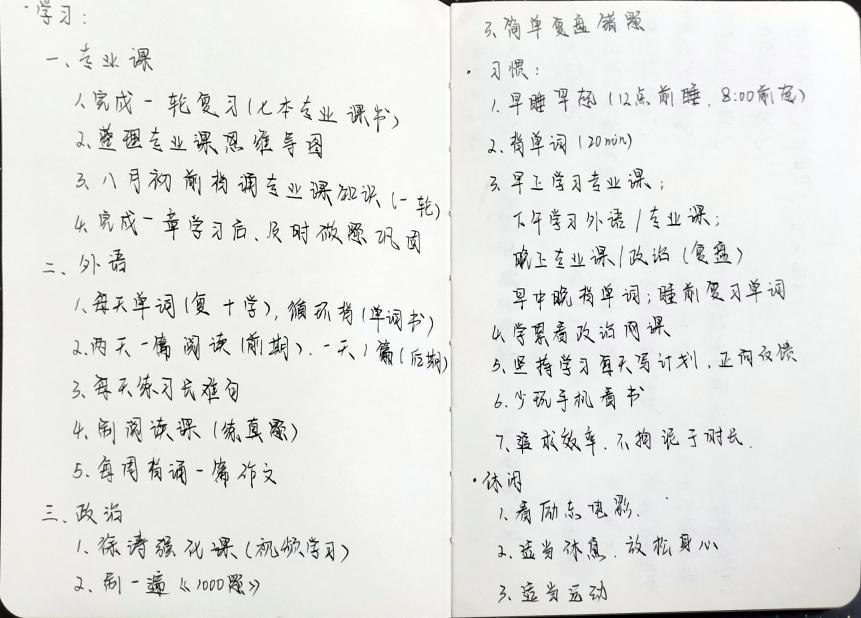 ·学习：
一、专业课
1.完成一轮复习(七本专业课书)
2.整理专业课思维导图
3.八月初前背诵专业课知识(一轮)
4.完成一章学习后、及时做题巩固
二、外语
1.每天单词(复+学)，循环背(单词书)
2.两天一篇阅读(前期)、一天1篇(后期)
3.每天练习长难句
4.刷阅读课(练真题)
5.每周背诵一篇作文
三、政治
1.徐涛强化课(视频学习)
2.刷一遍《1000题》
3.简单复盘错题
·习惯：
1.早睡早起(12点前睡、8:00前起)
2.背单词(20min)
3.早上学习专业课；
下午学习外语/专业课；
晚上专业课/政治(复盘)
早中晚背单词；睡前复习单词
4.学累看政治网课
5.坚持学习每天写计划、正向反馈
6.少玩手机看书
7.追求效率、不拘泥于时长.
·休闲
1.看励志电影.
2.适当休息、放松身心
3.适当运动